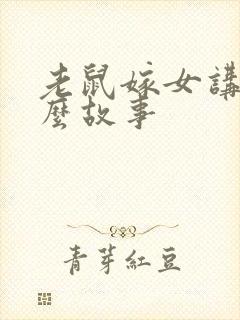 老鼠嫁女講
麼故事
青芽紅豆